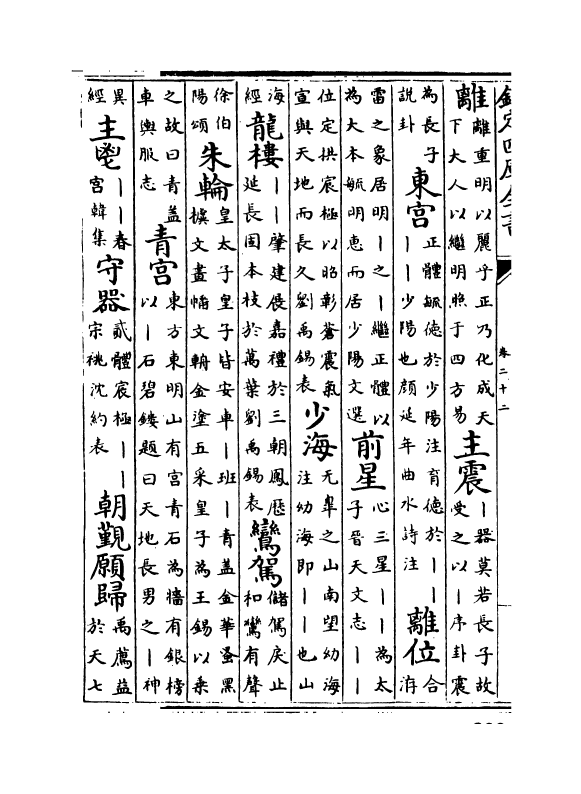 欽定四庫全書 卷二十二
離 離重明以麗乎正乃化成天下大人以繼明照于四方易 主震 ｜器莫若長子故受之以｜序卦震
為長子說卦 東宮 正體毓德於少陽注育德於｜｜｜｜少陽也顔延年曲水詩注 離位 合洊
雷之象居明｜之｜繼正體以為大本毓明惠而居少陽文選 前星 心三星｜｜為太子晉天文志｜｜
位定拱宸極以昭彰蒼震氣宣與天地而長久劉禹錫表 少海 无臯之山南望幼海注幼海即｜｜也山
海經 龍樓 ｜｜肇建展嘉禮於三朝鳳歷延長固本枝於萬葉劉禹錫表 鸞駕 儲駕戾止和鸞有聲
徐伯陽頌 朱輪 皇太子皇子皆安車｜班｜青蓋金華蚤黑文畫轓文輈金塗五采皇子為王錫以乘
之故曰青蓋車輿服志 青宮 東方東明山有宮青石為牆有銀榜以｜石碧鏤題曰天地長男之｜神
異經 主鬯 ｜｜春宮韓集 守器 貳體宸極｜｜宗祧沈約表 朝覲願歸 禹薦益於天七